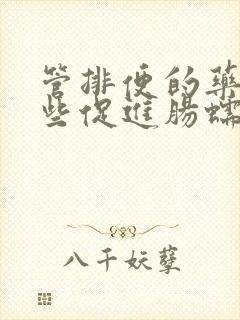 管排便的藥
些促進腸蠕
八千妖孽